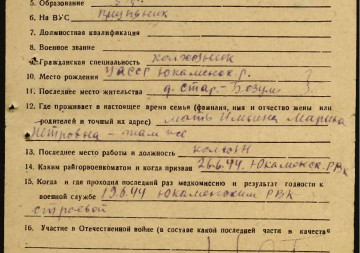 5. Образование
6. На ВУС призывник
7. Должностная квалификация
8. Военное звание
9. Гражданская специальность колхозник
10. Место рождения УАССР Юкаменск. р.
11. Последнее место жительства д. Стар-Безум
12. Где проживает в настоящее время семья (фамилия, имя и отчество жены или
родителей и точный их адрес) мать Ильина Марья
Петровна - там же
13. Последнее место работы и должность колхоз
14. Каким райгорвоенкоматом и когда призван 26.6.44. Юкаменск. РВК
15. Когда и где проходил последний раз медкомиссию и результат годности к
военной службе 19.6.44 Юкаменским РВК
строевой
16. Участие в Отечественной войне (в составе какой последней части в качестве